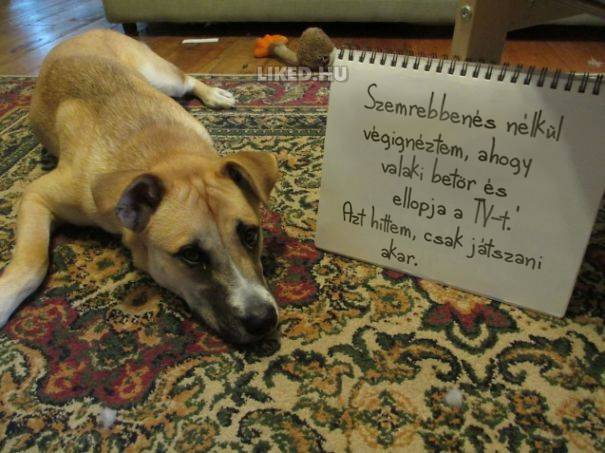 LIKED.HU
Szemrebbenés nélkül
végignéztem, ahogy
valaki betör és
ellopja a TV-t.
Azt hittem, csak játszani
akar.